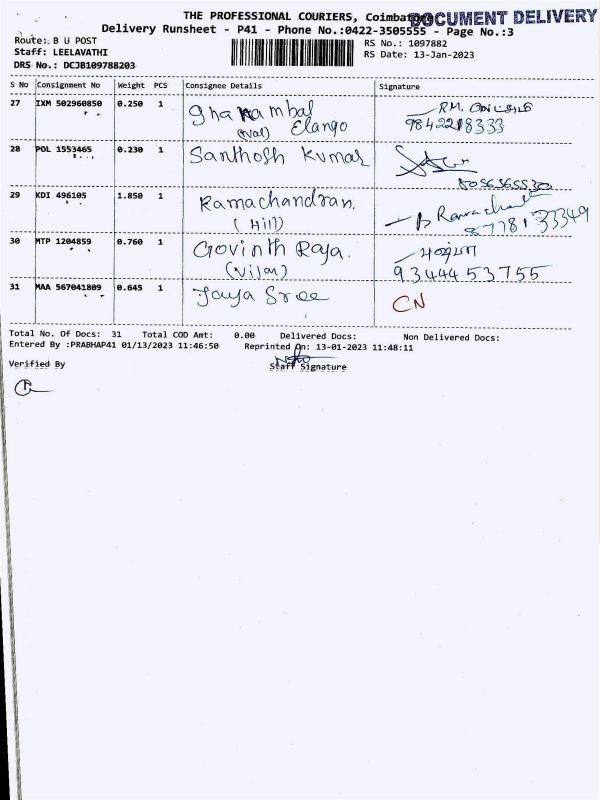 THE PROFESSIONAL COURIERS, Coimbatore
DOCUMENT DELIVERY
Delivery Runsheet - P41 - Phone No.:0422-3505555 - Page No.:3
Route: B U POST
RS No.: 1097882
Staff: LEELAVATHI
RS Date: 13-Jan-2023
DRS No.: DCJB109788203
S No Consignment No Weight PCS Consignee Details Signature
27 IXM 502960850 0.250 1 ghanambal RM.
(val) Elango 9842218333
28 POL 1553465 0.230 1 Santhosh Kumar
8056565530
29 KDI 496105 1.850 1 Ramachandran.
(Hill) 8778133349
30 MTP 1204859 0.760 1 Govinth Raja.
(Vilan) 9344453755
31 MAA 567041809 0.645 1 Jaya Sree CN
Total No. Of Docs: 31 Total COD Amt: 0.00 Delivered Docs: Non Delivered Docs:
Entered By :PRABHAP41 01/13/2023 11:46:50 Reprinted On: 13-01-2023 11:48:11
Verified By Staff Signature